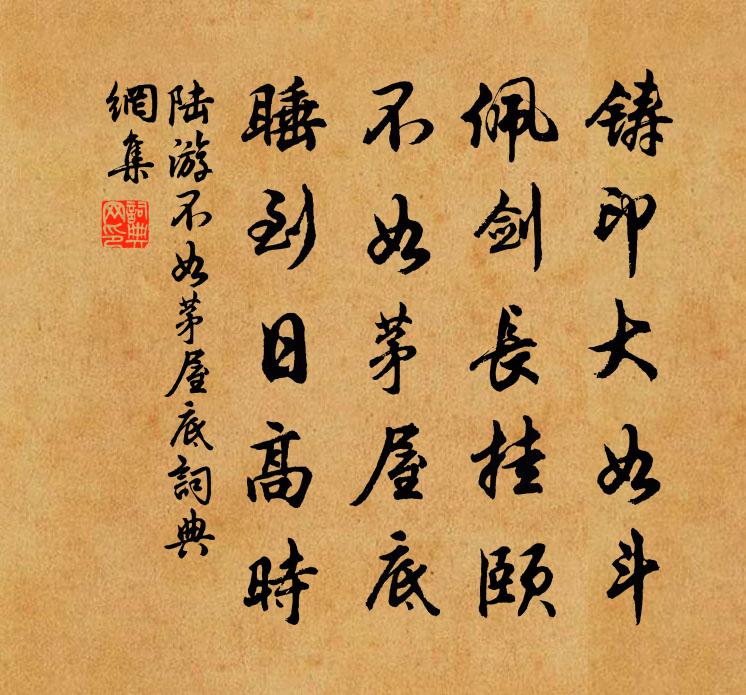 铸印大如斗
佩剑長挂颐
不如茅屋底
睡到日高時
陆游不如茅屋底詞典
網集
詞典
网印